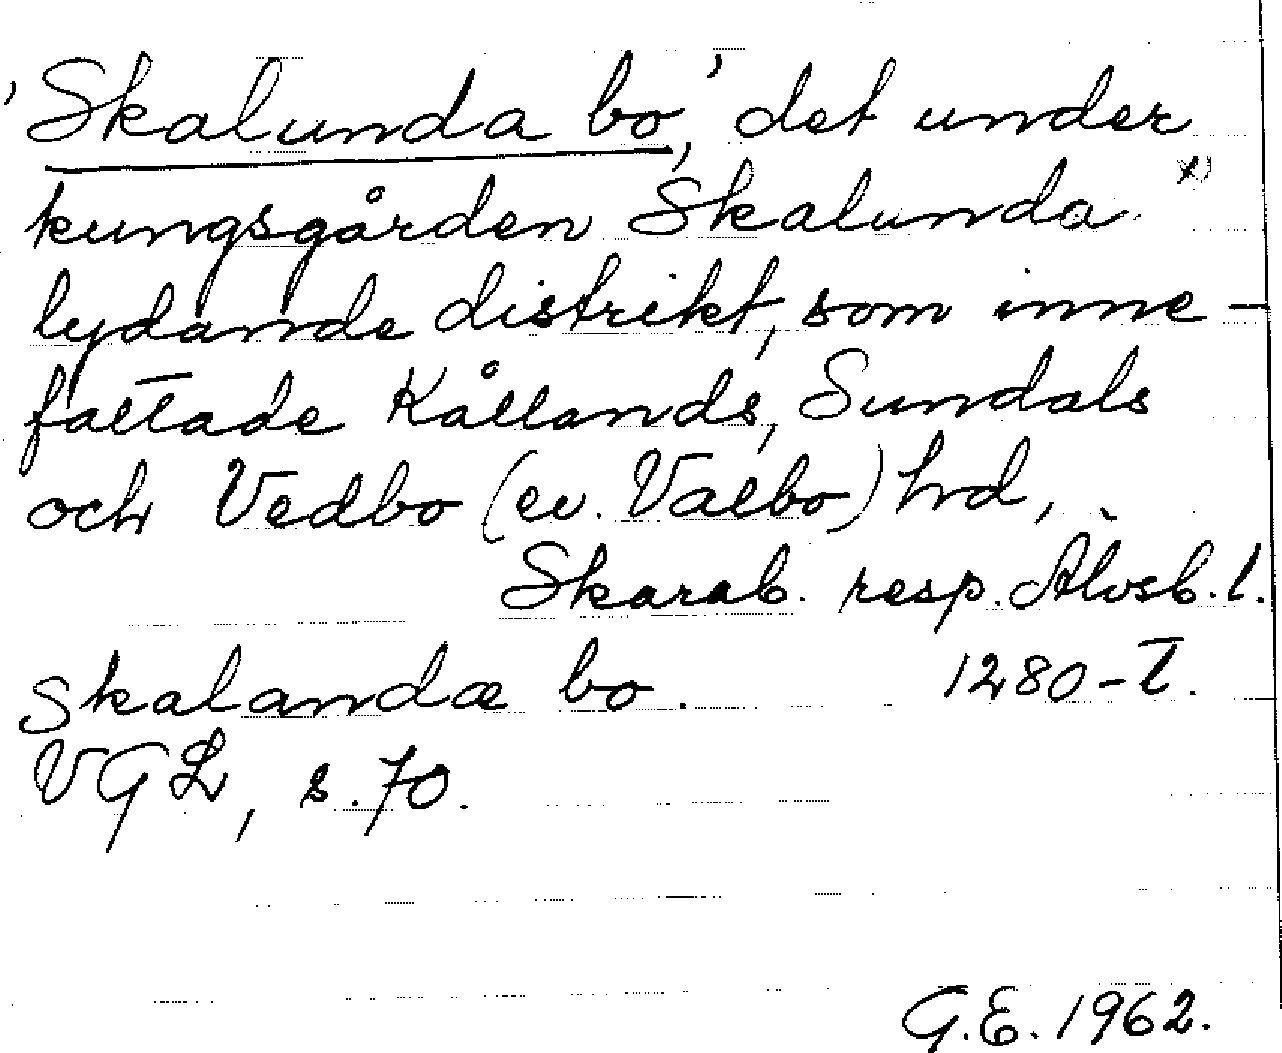 'Skalunda bo', det under
kungsgården Skalunda x)
lydande distrikt, som inne-
fattade Kållands, Sundals
och Vedbo (ev. Valbo) hd,
Skarab. resp. Älvsb. l.
Skalandæ bo. 1280-t.
VGL, s. 70.
G.E. 1962.